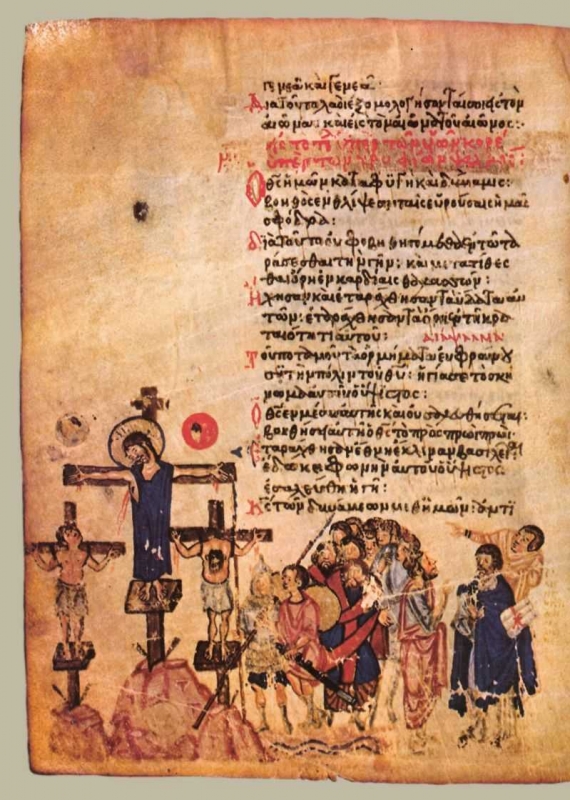 γενεᾷ καὶ γενεᾷ:
Διὰ τοῦτο λαοὶ ἐξομολογήσονταί σοι εἰς τὸν
αἰῶνα: καὶ εἰς τὸν αἰῶνα τοῦ αἰῶνος:
εἰς τὸ τέλος ὑπὲρ τῶν υἱῶν κορέ
ὑπὲρ τῶν κρυφίων ψαλμός:
Ὁ θς ἡμῶν καταφυγὴ καὶ δύναμις:
βοηθὸς ἐν θλίψεσι ταῖς εὑρούσαις ἡμᾶς
σφόδρα:
διὰ τοῦτο οὐ φοβηθησόμεθα ἐν τῷ τα
ράσσεσθαι τὴν γῆν: καὶ μετατίθεσ
θαι ὄρη ἐν καρδίαις θαλασσῶν:
Ἤχησαν καὶ ἐταράχθησαν τὰ ὕδατα αὐ
τῶν: ἐταράχθησαν τὰ ὄρη ἐν τῇ κρα
ταιότητι αὐτοῦ: διάψαλμα
Τοῦ ποταμοῦ τὰ ὁρμήματα εὐφραίνου
σι τὴν πόλιν τοῦ θυ: ἡγίασε τὸ σκή
νωμα αὐτοῦ ὁ ὕψιστος:
Ὁ θς ἐν μέσῳ αὐτῆς καὶ οὐ σαλευθήσεται:
βοηθήσει αὐτῇ ὁ θς τὸ πρὸς πρωῒ πρωΐ:
Ἐταράχθησαν ἔθνη ἔκλιναν βασιλεῖαι
ἔδωκε φωνὴν αὐτοῦ ὁ ὕψιστος
ἐσαλεύθη ἡ γῆ:
Κς τῶν δυνάμεων μεθ' ἡμῶν: ἀντι